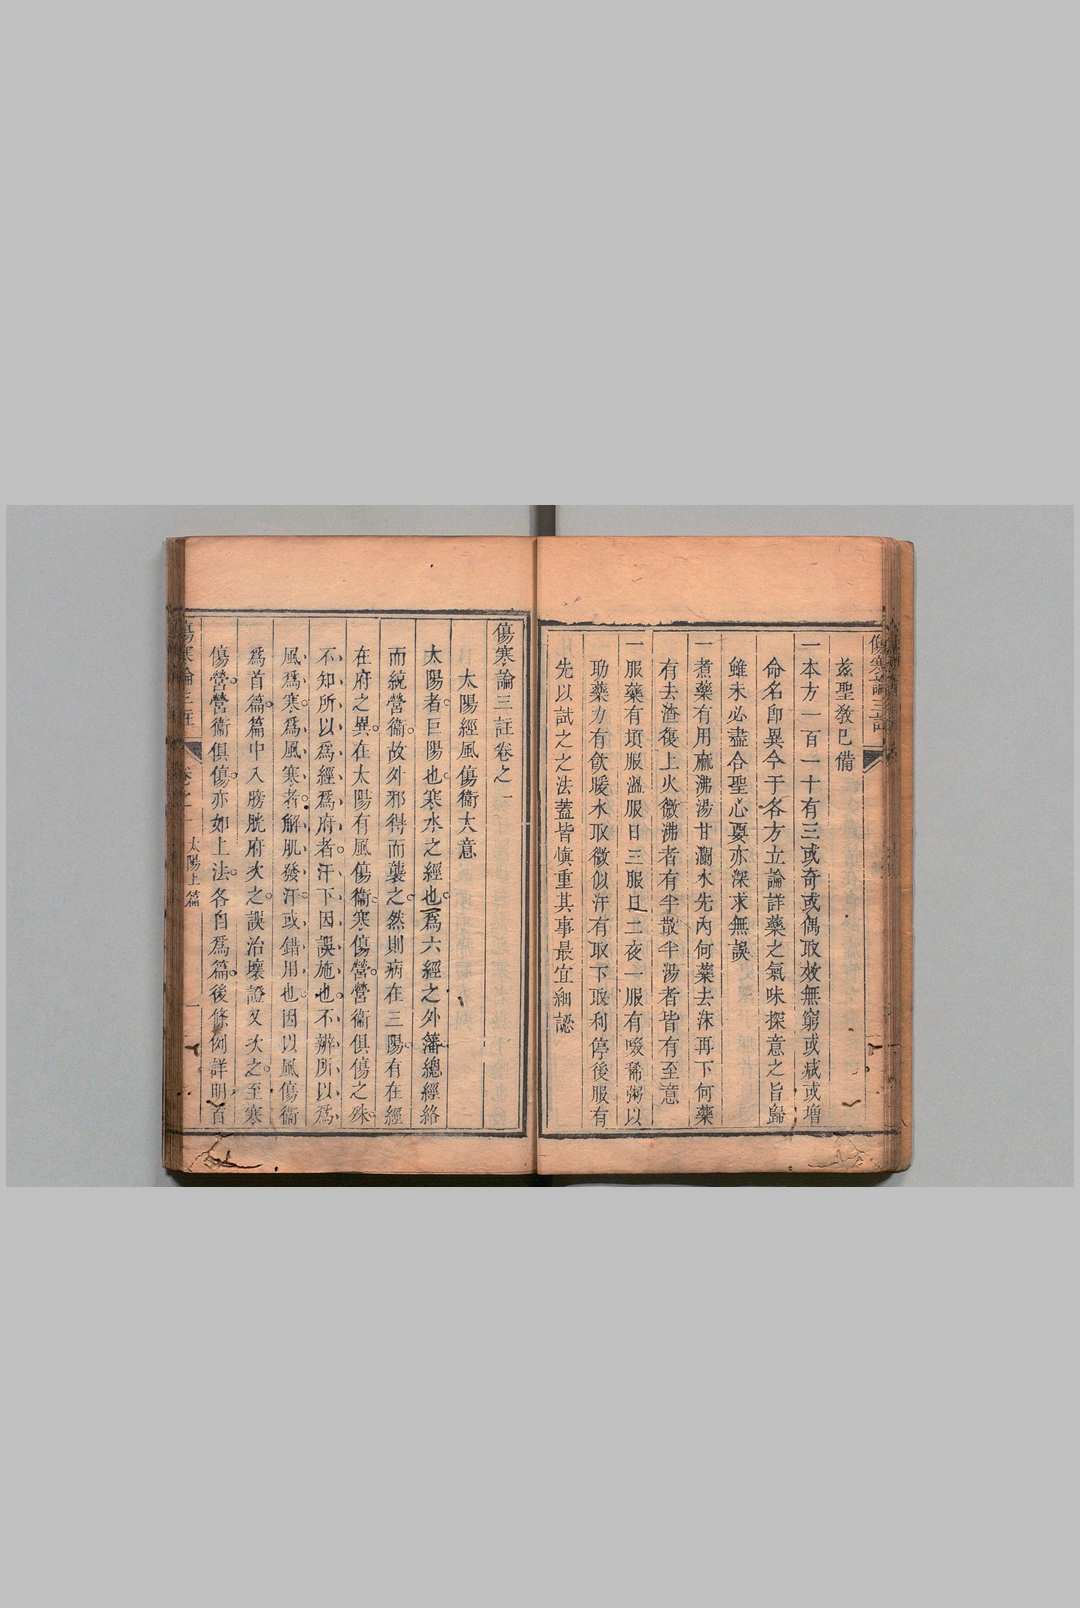 茲聖教已備
一本方一百一十有三或奇或偶取效無窮或減或增
命名卽異今于各方立論詳藥之氣味探意之旨歸
雖未必盡合聖心要亦深求無誤
一煮藥有用麻沸湯甘瀾水先內何藥去沫再下何藥
有去渣復上火微沸者有半散半湯者皆有至意
一服藥有頃服溫服日三服日二夜一服有啜稀粥以
助藥力有飲暖水取微似汗有取下取利停後服有
先以試之之法蓋皆慎重其事最宜細認
傷寒論三註卷之一
太陽經風傷衞大意
太陽者巨陽也寒水之經也爲六經之外藩總經絡
而統營衞故外邪得而襲之然則病在三陽有在經
在府之異在太陽有風傷衞寒傷營營衞俱傷之殊
不知所以爲經爲府者汗下因誤施也不辨所以爲
風爲寒爲風寒者解肌發汗或錯用也因以風傷衞
爲首篇篇中入膀胱府次之誤治壞證又次之至寒
傷營營衞俱傷亦如上法各自爲篇後條例詳明首
傷寒論三註 卷之一 太陽上篇 一